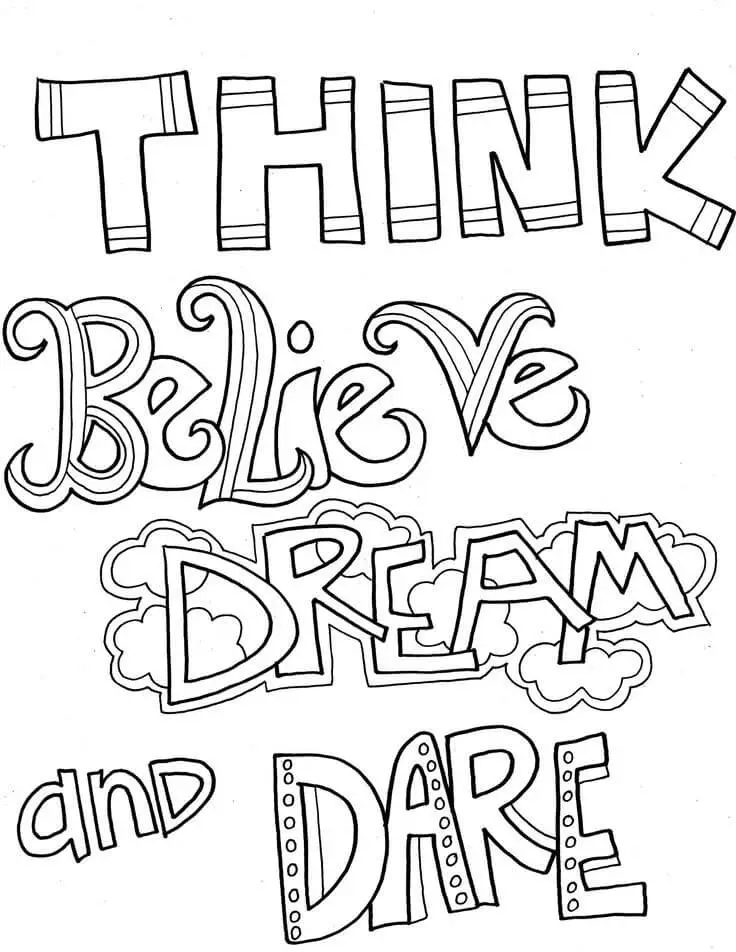 THINK
BeLieVe
DREAM
and DARE